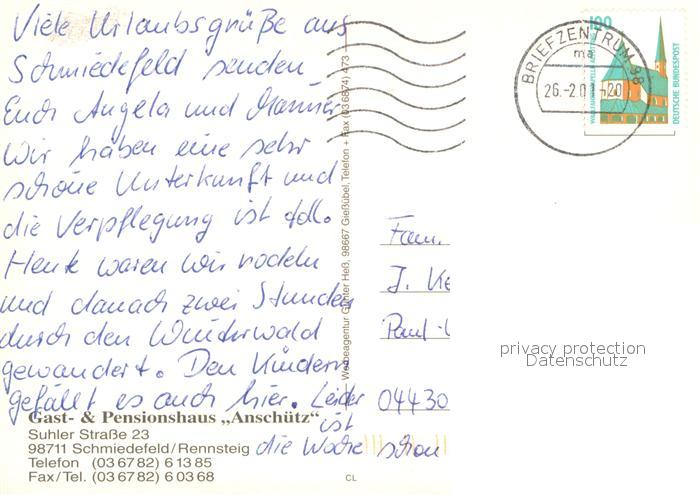 Viele Urlaubsgrüße aus
Schmiedefeld senden
Euch Angela und
Wir haben eine sehr
schöne Unterkunft und
die Verpflegung ist toll.
Heute waren wir rodeln
und danach zwei Stunden
durch den Winterwald
gewandert. Den Kindern
gefällt es auch hier. Leider
ist
die Woche schon
Gast- & Pensionshaus „Anschütz“
Suhler Straße 23
98711 Schmiedefeld/Rennsteig
Telefon (03 67 82) 6 13 85
Fax/Tel. (03 67 82) 6 03 68
CL
Werbeagentur Günter Heß, 98667 Gießübel, Telefon + Fax (03 6874) 473
BRIEFZENTRUM 98
ma
26.-2.01-20
100
DEUTSCHE BUNDESPOST
Fam.
J.
Paul-
04430
privacy protection
Datenschutz